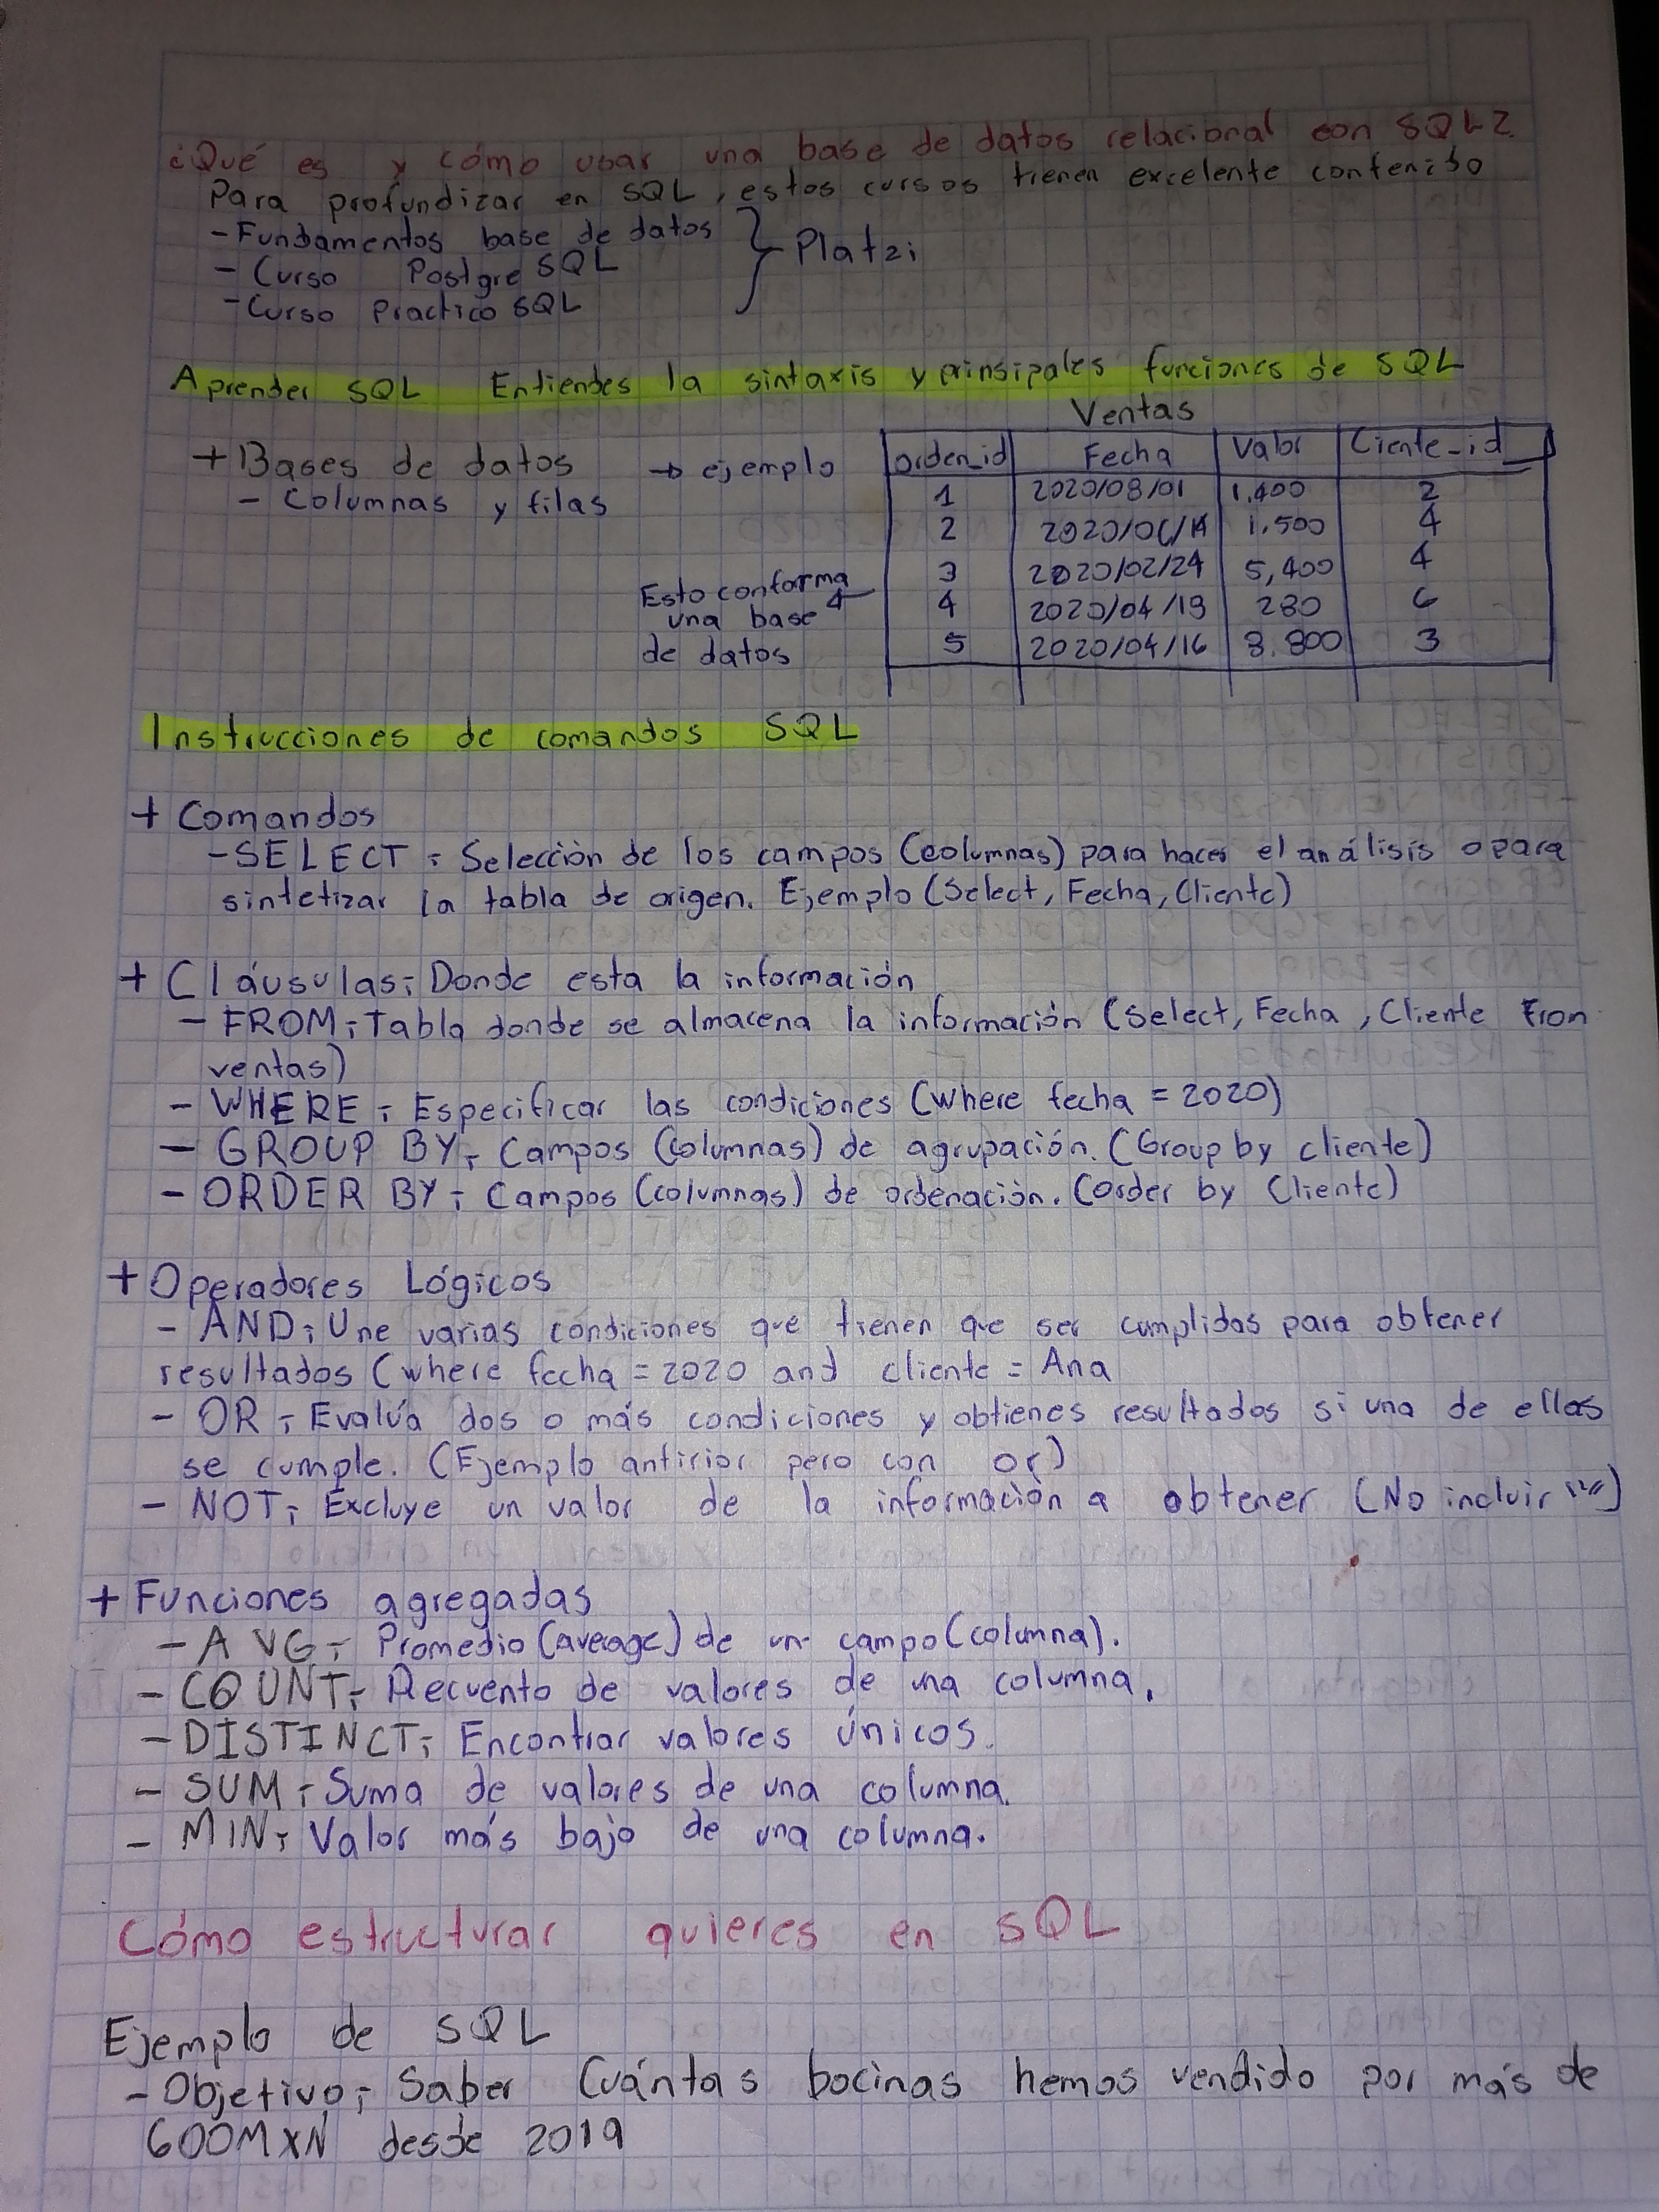 ¿Qué es y cómo usar una base de datos relacional con SQL?
Para profundizar en SQL, estos cursos tienen excelente contenido
- Fundamentos base de datos
- Curso PostgreSQL
- Curso Practico SQL
Platzi
Aprender SQL Entiendes la sintaxis y prinsipales funciones de SQL
Ventas
+ Bases de datos → ejemplo
- Columnas y filas
orden_id Fecha Valor Ciente_id
1 2020/08/01 1,400 2
2 1,500 4
3 2020/02/24 5,400 4
4 2020/04/19 280 6
5 2020/04/16 8.800 3
Esto conforma
una base
de datos
Instrucciones de comandos SQL
+ Comandos
- SELECT: Selección de los campos (columnas) para hacer el análisis o para
sintetizar la tabla de origen. Ejemplo (Select, Fecha, Cliente)
+ Cláusulas: Donde esta la información
- FROM: Tabla donde se almacena la información (Select, Fecha, Cliente From
ventas)
- WHERE: Especificar las condiciones (where fecha = 2020)
- GROUP BY: Campos (columnas) de agrupación. (Group by cliente)
- ORDER BY: Campos (columnas) de ordenación. (order by Cliente)
+ Operadores Lógicos
- AND: Une varias condiciones que tienen que ser cumplidas para obtener
resultados (where fecha = 2020 and cliente = Ana
- OR: Evalúa dos o más condiciones y obtienes resultados si una de ellas
se cumple. (Ejemplo antirior pero con or)
- NOT: Excluye un valor de la información a obtener (No incluir
+ Funciones agregadas
- AVG: Promedio (average) de un campo (columna).
- COUNT: Recuento de valores de una columna.
- DISTINCT: Encontrar valores únicos.
- SUM: Suma de valores de una columna.
- MIN: Valor más bajo de una columna.
Cómo estructurar quieres en SQL
Ejemplo de SQL
- Objetivo: Saber Cuántas bocinas hemos vendido por más de
600MXN desde 2019